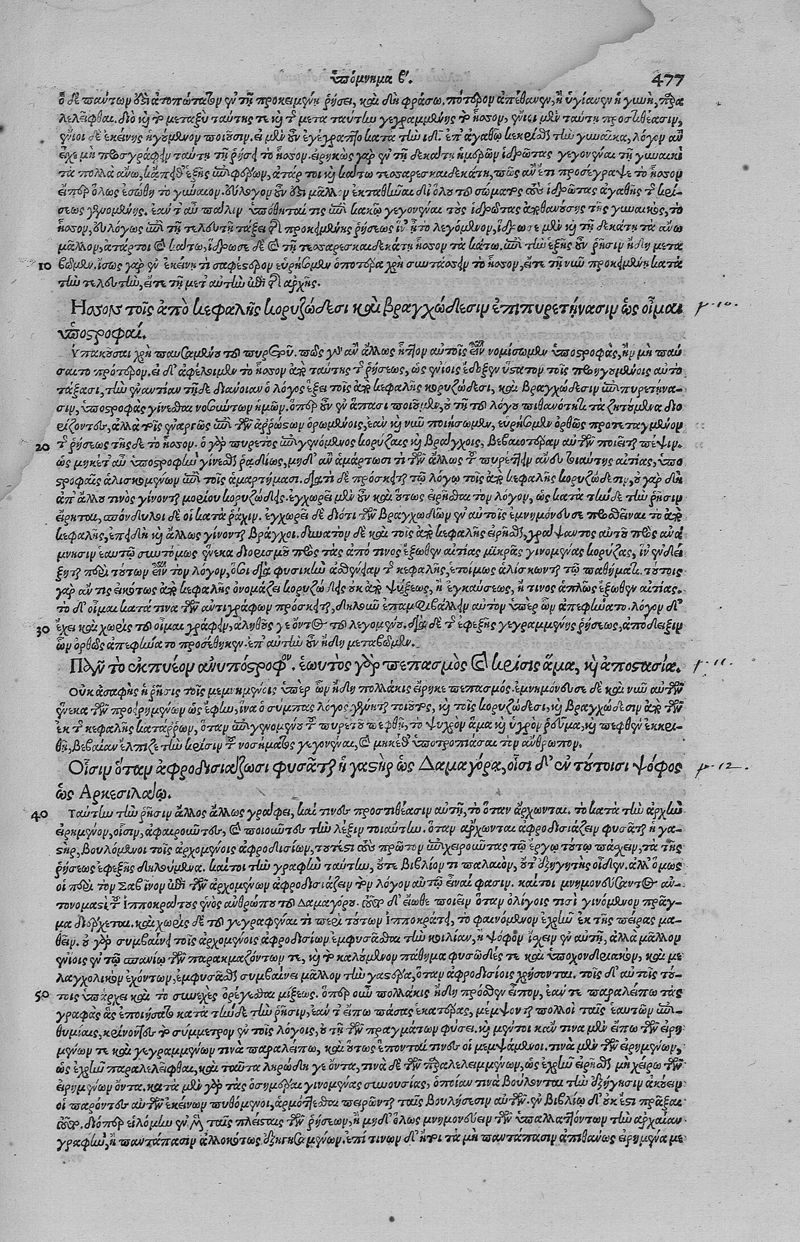 ὑπόμνημα β. 477
ὁ δὲ πάντων ἀτοπώτατον ἐν τῇ προκειμένῃ ῥήσει, καὶ δὴ φράσω. πότερον ἀπέθανεν, ἢ ὑγίανεν ἡ γυνὴ, παρα
λέλειπται. διὸ καὶ τὸ μεταξὺ ταύτης τε καὶ τὸ μετὰ ταύτην γεγραμμένης τὸ ἧσσον, ἔνιοι μὲν ταύτῃ προστιθέασιν,
ἔνιοι δὲ ἐκείνης ἡγούμενον ποιοῦσιν. εἰ μὲν οὖν ἐγέγραπτο κατὰ τὴν ἐπ' ἀγαθῷ κεκρίσθαι τὴν γυναῖκα, λόγον ἂν
εἶχε μὴ προσγράφειν ταύτῃ τῇ ῥήσει τὸ ἧσσον. εἰρηκὼς γὰρ ἐν τῇ δεκάτῃ ἡμερῶν ἱδρῶτας γεγονέναι τῇ γυναικὶ
τὰ πολλὰ ἄνω, ἐπιφέρων, ἀτὰρ τοι καὶ κάτω τεσσαρεσκαιδεκάτῃ, πῶς ἂν ἔτι προσέγραψε τὸ ἧσσον
εἴπερ ὅλως ἐσώθη τὸ γύναιον. εὔλογον μᾶλλον ἐκταθῆναι δι' ὅλου τοῦ σώματος τοὺς ἱδρῶτας ἀγαθῆς τῆς κρί-
σεως γινομένης. ἐὰν δ' αὖ πάλιν ὑπόθηταί τις ἐπὶ κακῷ γεγονέναι τοὺς ἱδρῶτας ἀποθανούσης τῆς γυναικὸς, τὸ
ἧσσον, εὐλόγως ἐπὶ τῇ τελευτῇ τάξει τῆς προκειμένης ῥήσεως ἵν' ᾖ τὸ λεγόμενον, ἵδρωσε μὲν καὶ τῇ δεκάτῃ τὰ ἄνω
μᾶλλον, ἀτάρτοι καὶ κάτω, ἵδρωσε δὲ καὶ τῇ τεσσαρεσκαιδεκάτῃ ἧσσον τὰ κάτω. ἐπὶ τὴν ἑξῆς οὖν ῥῆσιν ἤδη μετα
10 βῶμεν. ἴσως γὰρ ἐν ἐκείνῃ τι σαφέστερον εὑρήσομεν ὁποτέρᾳ χρὴ συντάσσειν τὸ ἧσσον, εἴτε τῇ νῦν προκειμένῃ κατὰ
τὴν τελευτὴν, εἴτε τῇ μετ' αὐτὴν ἐπὶ τῆς ἀρχῆς.
Ησσον τοῖς ἀπὸ κεφαλῆς κορυζώδεσι καὶ βραγχώδεσιν ἐπιπυρετήνασιν ὡς οἶμαι p. 10.
ὑποστροφαί.
Ὑπακοῦσαι χρὴ παυσαμένου τοῦ πυρετοῦ. πῶς γὰρ ἂν ἄλλως ἧττον αὐτοῖς εἶναι νομίσωμεν ὑποστροφὰς, ἢν μὴ παύ
σαιτο πρότερον. εἰ δ' ἀφέλοιμεν τὸ ἧσσον ἀπὸ ταύτης τῆς ῥήσεως, ὡς ἐνίοις ἔδοξεν ὕστατον τοῖς προηγουμένοις αὐτὸ
τάξασι, τὴν ἐναντίαν τῇδε διάνοιαν ὁ λόγος ἕξει τοῖς ἀπὸ κεφαλῆς κορυζώδεσι, καὶ βραγχώδεσιν ἐπιπυρετήνα-
σιν, ὑποστροφὰς γίνεσθαι νοούντων ἡμῶν. ὅπερ οὖν ἐν ἅπασι ποιοῦμεν, οὐ τῇ τοῦ λόγου πιθανότητι τὰ ζητούμενα διο
ρίζοντες, ἀλλὰ τοῖς ἐναργῶς ἐπὶ τῶν ἀρρώστων ὁρωμένοις, ἐὰν καὶ νῦν ποιήσωμεν, εὑρήσομεν ὀρθῶς προτεταγμένον
20 τῆς ῥήσεως τῆσδε τὸ ἧσσον. ὁ γὰρ πυρετὸς ἐπιγενόμενος κορύζαις καὶ βράγχοις, βεβαιοτέραν αὐτῶν ποιεῖται πέψιν.
ὡς μηκέτ' ἂν ὑποστροφὴν γίνεσθαι ῥᾳδίως, μηδ' ἂν ἁμάρτωσί τι τῶν ἄλλως τὸ πυρέττειν ἄνευ διαύτης αἰτίας, ὑπο
στροφαῖς ἁλισκομένων ἐπὶ τοῖς ἁμαρτήμασι. διὰ τί δὲ πρόσκειται τῷ λόγῳ τοῖς ἀπὸ κεφαλῆς κορυζώδεσιν, οὐ γὰρ δὴ
ἀπ' ἄλλου τινὸς γίνονται μορίου κορυζώδεις. ἐγχωρεῖ μὲν οὖν καὶ οὕτως εἰρῆσθαι τὸν λόγον, ὡς κατὰ τήνδε τὴν ῥῆσιν
εἴρηται, σπόνδυλοι δὲ οἱ κατὰ ῥάχιν. ἐγχωρεῖ δὲ διότι τῶν βραγχωδῶν ἐν αὐτοῖς ἐμνημόνευσε προσθεῖναι τὸ ἀπὸ
κεφαλῆς, ἐπειδὴ καὶ ἄλλως γίνονται βράγχοι. δυνατὸν δὲ καὶ τοῖς ἀπὸ κεφαλῆς εἰρῆσθαι, γράψαντος αὐτοῦ πρὸς ἀνά
μνησιν ἑαυτῷ συντόμως ἕνεκα διορισμοῦ πρὸς τὰς ἀπό τινος ἔξωθεν αἰτίας μικρᾶς γινομένας κορύζας, ἵν' ἐνδεί
ξηται περὶ τούτων εἶναι τὸν λόγον, ὅσοι διὰ φυσικὴν ἀσθένειαν τῆς κεφαλῆς, ἑτοίμως ἁλίσκονται τῷ παθήματι. τούτοις
γὰρ ἄν τις εἰκότως ἀπὸ κεφαλῆς ὀνομάζοι κορυζώδεις οὐκ ἀπὸ ψύξεως, ἢ ἐγκαύσεως, ἤ τινος ἁπλῶς ἔξωθεν αἰτίας.
τὸ δ' οἶμαι κατά τινα τῶν ἀντιγράφων πρόσκειται, δηλοῦν ἐπαμφιβάλλειν αὐτὸν ὑπὲρ ὧν ἀπεφήνατο. λόγον δ'
30 ἔχει καὶ χωρὶς τοῦ οἶμαι γράφειν, ἀληθὲς γε ὄντος τοῦ λεγομένου. διὰ δὲ τῆς ἐφεξῆς γεγραμμένης ῥήσεως, ἀπόδειξιν
ὧν ὀρθῶς ἀπεφήνατο προσέθηκεν. ἐπ' αὐτὴν οὖν ἤδη μεταβῶμεν.
Πᾶν τὸ ἐκπυέον ἀνυπόστροφον. ἑωυτὸς γὰρ πεπασμὸς καὶ κρίσις ἅμα, καὶ ἀποστασία. p. 11.
Οὐκ ἀσαφὴς ἡ ῥῆσις τοῖς μεμνημένοις ὑπὲρ ὧν ἤδη πολλάκις εἴρηκε πεπασμός. ἐμνημόνευσε δὲ καὶ νῦν αὐτῶν
ἕνεκα τῶν προειρημένων ὡς ἔφην, ἵνα ὁ σύμπας λόγος γένηται τοιοῦτος, καὶ τοῖς κορυζώδεσι, καὶ βραγχώδεσιν ἀπὸ τῶν
ἐκ τῆς κεφαλῆς κατάρρων, ὅταν ἐπιγενομένου τοῦ πυρετοῦ πεφθῇ τὸ ψυχρὸν ἅμα καὶ ὑγρὸν ῥεῦμα, καὶ πεφθὲν ἐκκρι-
θῇ, βεβαίαν ἔλπιζε τὴν κρίσιν τοῦ νοσήματος γεγονέναι, καὶ μηκέθ' ὑποτροπιάσαι τὸν ἄνθρωπον.
Οἷσιν ὅταν ἀφροδισιάζωσι φυσᾶται ἡ γαστὴρ ὡς Δαμαγόρᾳ, οἷσι δ' ἐν τούτοισι ψόφος p. 12.
ὡς Αρκεσιλάῳ.
40 Ταύτην τὴν ῥῆσιν ἄλλος ἄλλως γράφει, καί τινες προστιθέασιν αὐτῇ, τὸ ὅταν ἄρχωνται. τὸ κατὰ τὴν ἀρχὴν
εἰρημένον, οἷσιν, ἀφαιροῦντες, καὶ ποιοῦντες τὴν λέξιν τοιαύτην. ὅταν ἄρχωνται ἀφροδισιάζειν φυσᾶται ἡ γα-
στὴρ, βουλόμενοι τοῖς ἀρχομένοις ἀφροδισίων, τουτέστι τοῖς πρῶτον ἐπιχειροῦσι τῷ ἔργῳ τούτῳ πάσχειν, τὰ τῆς
ῥήσεως ἐφεξῆς δηλούμενα. καίτοι τὴν γραφὴν ταύτην, οὔτε βιβλίον τι παλαιὸν, οὔτ' ἐξηγητὴς οἶδεν. ἀλλ' ὅμως
οἱ περὶ τὸν Σαβῖνον ἐπὶ τῶν ἀρχομένων ἀφροδισιάζειν τὸν λόγον αὐτῷ εἶναί φασιν. καίτοι μνημονεύσαντος αὐ-
τονομαστὶ τοῦ Ιπποκράτους ἑνὸς ἀνθρώπου τοῦ Δαμαγόρου. ὅπερ δ' εἴωθε ποιεῖν ὅταν ὀλίγοις τισὶ γινόμενον πρᾶγ-
μα διέρχεται. καὶ χωρὶς δὲ τοῦ γεγραφέναι τι περὶ τούτων Ιπποκράτη, τὸ φαινόμενον ἐχρῆν ἐκ τῆς πείρας μα-
θεῖν. οὐ γὰρ συμβαίνει τοῖς ἀρχομένοις ἀφροδισίων ἐμφυσᾶσθαι τὴν κοιλίαν, ἢ ψόφον ἴσχειν ἐν αὐτῇ, ἀλλὰ μᾶλλον
ἐνίοις ἐν τῷ σπανίῳ τῶν παρακμαζόντων τε, καὶ τὸ καλούμενον πάθημα φυσῶδές τε καὶ ὑποχονδριακὸν, καὶ με
λαγχολικὸν ἐχόντων, ἐμφυσᾶσθαι συμβαίνει μᾶλλον τὴν γαστέρα, ὅταν ἀφροδισίοις χρήσωνται. τοῖς δ' αὐτοῖς τού-
50 τοις ὑπάρχει καὶ τὸ συνεχῶς ὀρέγεσθαι μίξεως. ὅπερ οὖν πολλάκις ἤδη πρόσθεν εἶπον, ἐάν τε παραλείπω τὰς
γραφὰς ἃς ἐποιήσαντο κατὰ τήνδε τὴν ῥῆσιν, ἐάν τ' εἴπω πάσας ἑκατέρας, μέμψονται πολλοὶ ταῖς ἑαυτῶν ἐπι-
θυμίαις, κρίνοντες τὸ σύμμετρον ἐν τοῖς λόγοις, οὐ τῇ τῶν πραγμάτων φύσει. καὶ μέντοι κἄν τινα μὲν εἴπω τῶν εἰρη-
μένων τε καὶ γεγραμμένων τινὰ παραλείπω, καὶ οὕτως ἕπονταί τινες οἱ μεμψάμενοι. τινὰ μὲν τῶν εἰρημένων,
ὡς ἐχρῆν παραλελεῖφθαι, καὶ ταῦτα ληρώδη γε ὄντα, τινὰ δὲ τῶν παραλελειμμένων, ὡς ἐχρῆν εἰρῆσθαι μὴ χείρω τῶν
εἰρημένων ὄντα. κατὰ μὲν γὰρ τὰς ὁσημέραι γινομένας συνουσίας, ὁποίαν τινὰ βούλονται τὴν ἐξήγησιν ἀκούειν
οἱ παρόντες αὐτῶν ἐκείνων πυθόμενοι, ἁρμόττεσθαι πειρῶνται ταῖς βουλήσεσιν αὐτῶν. ἐν βιβλίῳ δ' οὐκ ἔστι πρᾶξαι
διόπερ εἱλόμην ἐν ταῖς πλείσταις τῶν ῥήσεων, ἢ μηδ' ὅλως μνημονεύειν τῶν ὑπαλλαττόντων τὴν ἀρχαίαν
γραφὴν, ἢ παντάπασιν ἀλλοκότως ἐξηγησαμένων. ἐπί τινων δ' ἤτοι τὰ μὴ παντάπασιν ἀπιθάνως εἰρημένα με